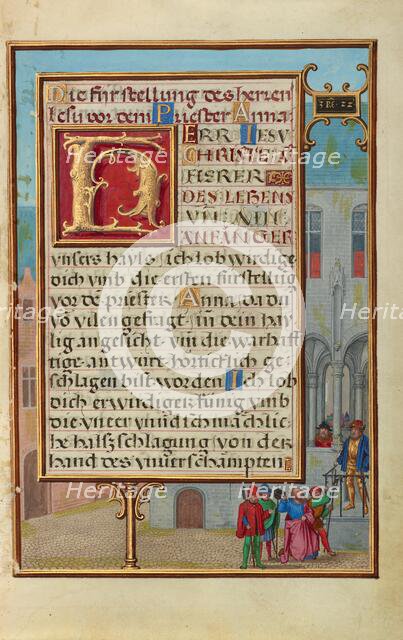 Die fürstellung des herren
Jesu vor dem Priester Anna
HERR IESV
CHRISTVS
FIERER
DES LEBENS
VN̄ AIN
ANFÄNGER
vnsers hayls ich lob wirdige
dich vmb die ersten fürstellung
vor dē priester Anna, da du
so vilen gefragt, in dein hay¬
lig angesicht vm̄ die warhaff¬
tige antwurt hertticklich ge¬
schlagen bist worden Ich lob
dich erwirdiger künig vmb
die vneer vnd schmachliche
he halszschlagung von der
hand des vnuerschampten
Heritage